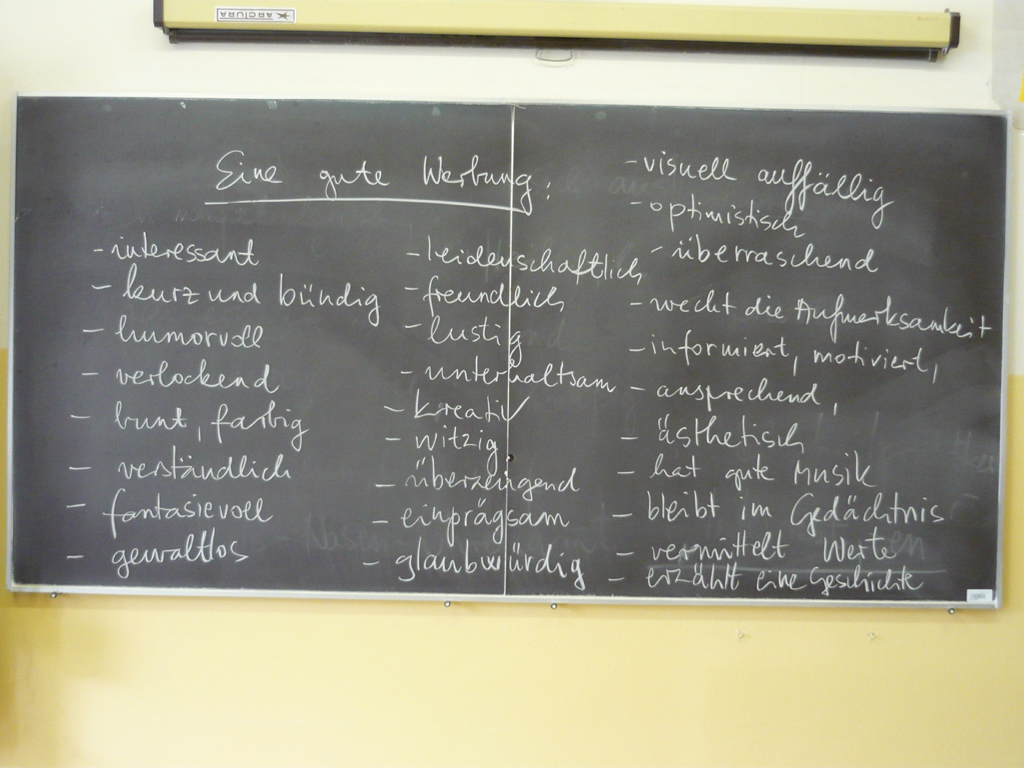 ARCTURA
Eine gute Werbung:
- interessant
- kurz und bündig
- humorvoll
- verlockend
- bunt, farbig
- verständlich
- fantasievoll
- gewaltlos
- leidenschaftlich
- freundlich
- lustig
- unterhaltsam
- kreativ
- witzig
- überzeugend
- einprägsam
- glaubwürdig
- visuell auffällig
- optimistisch
- überraschend
- weckt die Aufmerksamkeit
- informiert, motiviert,
- ansprechend,
- ästhetisch
- hat gute Musik
- bleibt im Gedächtnis
- vermittelt Werte
- erzählt eine Geschichte